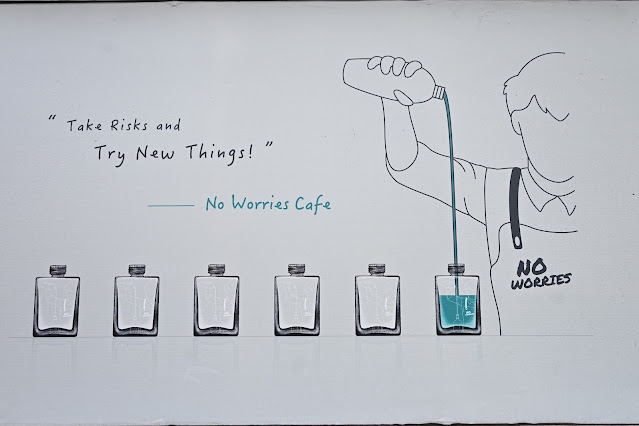 “ Take Risks and
Try New Things! ”
No Worries Cafe
NO
WORRIES